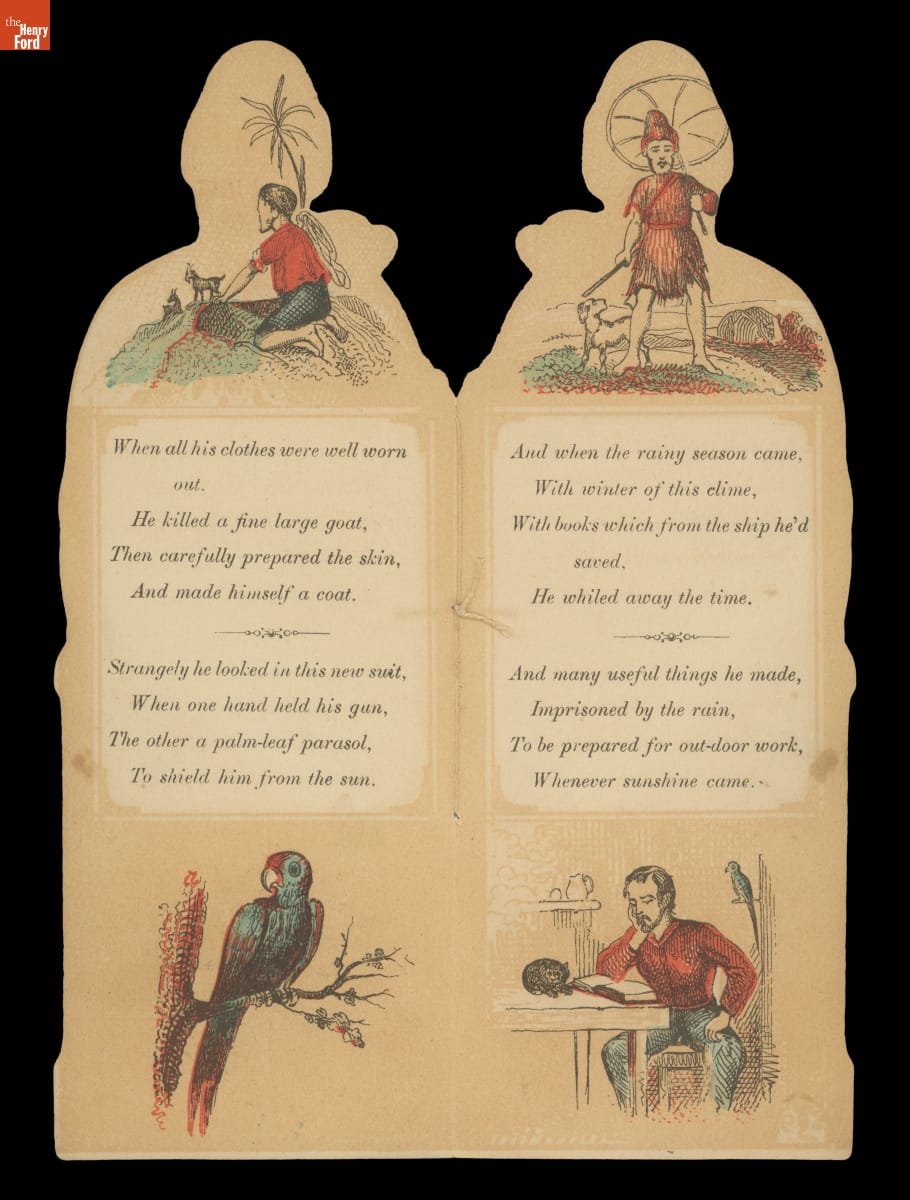 the
Henry
Ford
When all his clothes were well worn
out.
He killed a fine large goat,
Then carefully prepared the skin,
And made himself a coat.
Strangely he looked in this new suit,
When one hand held his gun,
The other a palm-leaf parasol,
To shield him from the sun.
And when the rainy season came,
With winter of this clime,
With books which from the ship he'd
saved,
He whiled away the time.
And many useful things he made,
Imprisoned by the rain,
To be prepared for out-door work,
Whenever sunshine came.